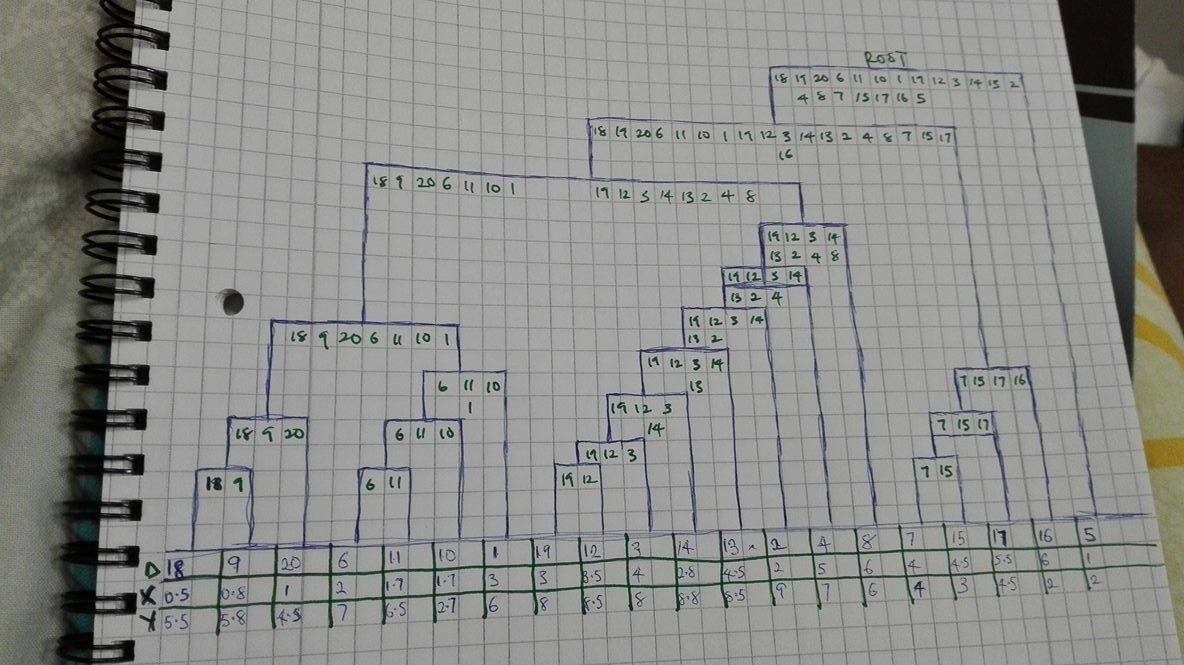 ROOT
18 19 20 6 11 10 1 19 12 3 14 13 2
4 8 7 15 17 16 5
18 19 20 6 11 10 1 19 12 3 14 13 2 4 8 7 15 17
16
18 9 20 6 11 10 1 19 12 3 14 13 2 4 8
19 12 3 14
13 2 4 8
19 12 3 14
13 2 4
19 12 3 14
13 2
18 9 20 6 11 10 1
19 12 3 14
13
6 11 10
1
7 15 17 16
19 12 3
14
18 9 20
6 11 10
7 15 17
19 12 3
18 9
6 11
19 12
7 15
D 18 9 20 6 11 10 1 19 12 3 14 13 2 4 8 7 15 17 16 5
X 0.5 0.8 1 2 1.7 1.7 3 3 3.5 4 2.8 4.5 2 5 6 4 4.5 5.5 6 1
Y 5.5 5.8 4.5 7 6.5 2.7 6 8 8.5 8 8.8 8.5 9 7 6 4 3 4.5 2 2